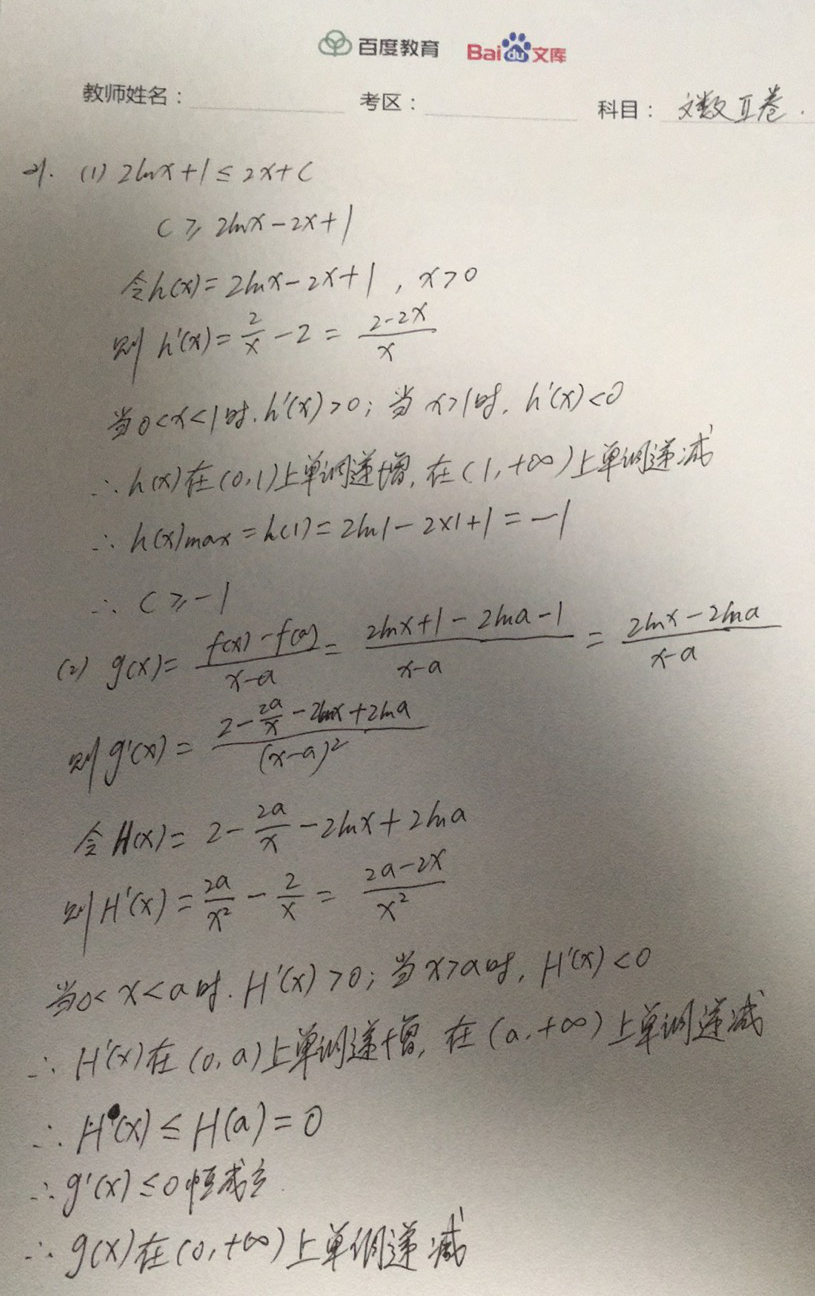 百度教育 Bai du 文库
教师姓名： 考区： 科目： 文数Ⅱ卷.
21. (1) 2lnx+1≤2x+c
c≥2lnx-2x+1
令h(x)=2lnx-2x+1, x>0
则h'(x)=2/x-2=(2-2x)/x
当0<x<1时, h'(x)>0; 当x>1时, h'(x)<0
∴h(x)在(0,1)上单调递增, 在(1,+∞)上单调递减
∴h(x)max=h(1)=2ln1-2×1+1=-1
∴c≥-1
(2) g(x)=(f(x)-f(a))/(x-a)=(2lnx+1-2lna-1)/(x-a)=(2lnx-2lna)/(x-a)
则g'(x)=(2-2a/x-2lnx+2lna)/(x-a)²
令H(x)=2-2a/x-2lnx+2lna
则H'(x)=2a/x²-2/x=(2a-2x)/x²
当0<x<a时, H'(x)>0; 当x>a时, H'(x)<0
∴H'(x)在(0,a)上单调递增, 在(a,+∞)上单调递减
∴H(x)≤H(a)=0
∴g'(x)≤0恒成立.
∴g(x)在(0,+∞)上单调递减